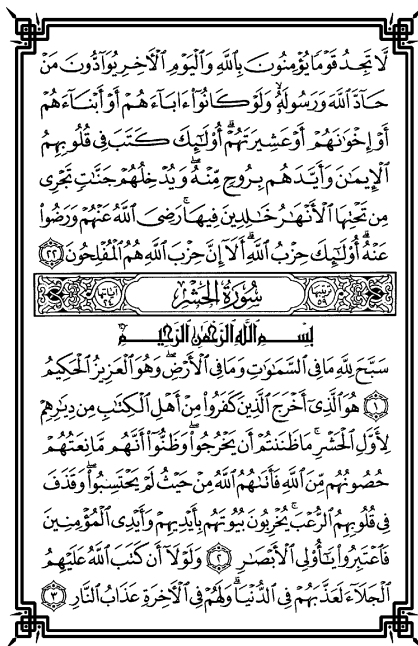 لَّا تَجِدُ قَوْمًا يُؤْمِنُونَ بِاللَّهِ وَالْيَوْمِ الْآخِرِ يُوَادُّونَ مَنْ
حَادَّ اللَّهَ وَرَسُولَهُ وَلَوْ كَانُوا ءَابَاءَهُمْ أَوْ أَبْنَاءَهُمْ
أَوْ إِخْوَانَهُمْ أَوْ عَشِيرَتَهُمْ ۚ أُولَٰئِكَ كَتَبَ فِي قُلُوبِهِمُ
الْإِيمَٰنَ وَأَيَّدَهُم بِرُوحٍ مِّنْهُ ۖ وَيُدْخِلُهُمْ جَنَّٰتٍ تَجْرِي
مِن تَحْتِهَا الْأَنْهَٰرُ خَٰلِدِينَ فِيهَا ۚ رَضِيَ اللَّهُ عَنْهُمْ وَرَضُوا
عَنْهُ ۚ أُولَٰئِكَ حِزْبُ اللَّهِ ۚ أَلَا إِنَّ حِزْبَ اللَّهِ هُمُ الْمُفْلِحُونَ ٢٢
سُورَةُ الْحَشْرِ
بِسْمِ اللَّهِ الرَّحْمَٰنِ الرَّحِيمِ
سَبَّحَ لِلَّهِ مَا فِي السَّمَٰوَٰتِ وَمَا فِي الْأَرْضِ ۖ وَهُوَ الْعَزِيزُ الْحَكِيمُ
١ هُوَ الَّذِي أَخْرَجَ الَّذِينَ كَفَرُوا مِنْ أَهْلِ الْكِتَٰبِ مِن دِيَٰرِهِمْ
لِأَوَّلِ الْحَشْرِ ۚ مَا ظَنَنتُمْ أَن يَخْرُجُوا ۖ وَظَنُّوا أَنَّهُم مَّانِعَتُهُمْ
حُصُونُهُم مِّنَ اللَّهِ فَأَتَىٰهُمُ اللَّهُ مِنْ حَيْثُ لَمْ يَحْتَسِبُوا ۖ وَقَذَفَ
فِي قُلُوبِهِمُ الرُّعْبَ ۚ يُخْرِبُونَ بُيُوتَهُم بِأَيْدِيهِمْ وَأَيْدِي الْمُؤْمِنِينَ
فَاعْتَبِرُوا يَٰأُولِي الْأَبْصَٰرِ ٢ وَلَوْلَا أَن كَتَبَ اللَّهُ عَلَيْهِمُ
الْجَلَاءَ لَعَذَّبَهُمْ فِي الدُّنْيَا ۖ وَلَهُمْ فِي الْآخِرَةِ عَذَابُ النَّارِ ٣